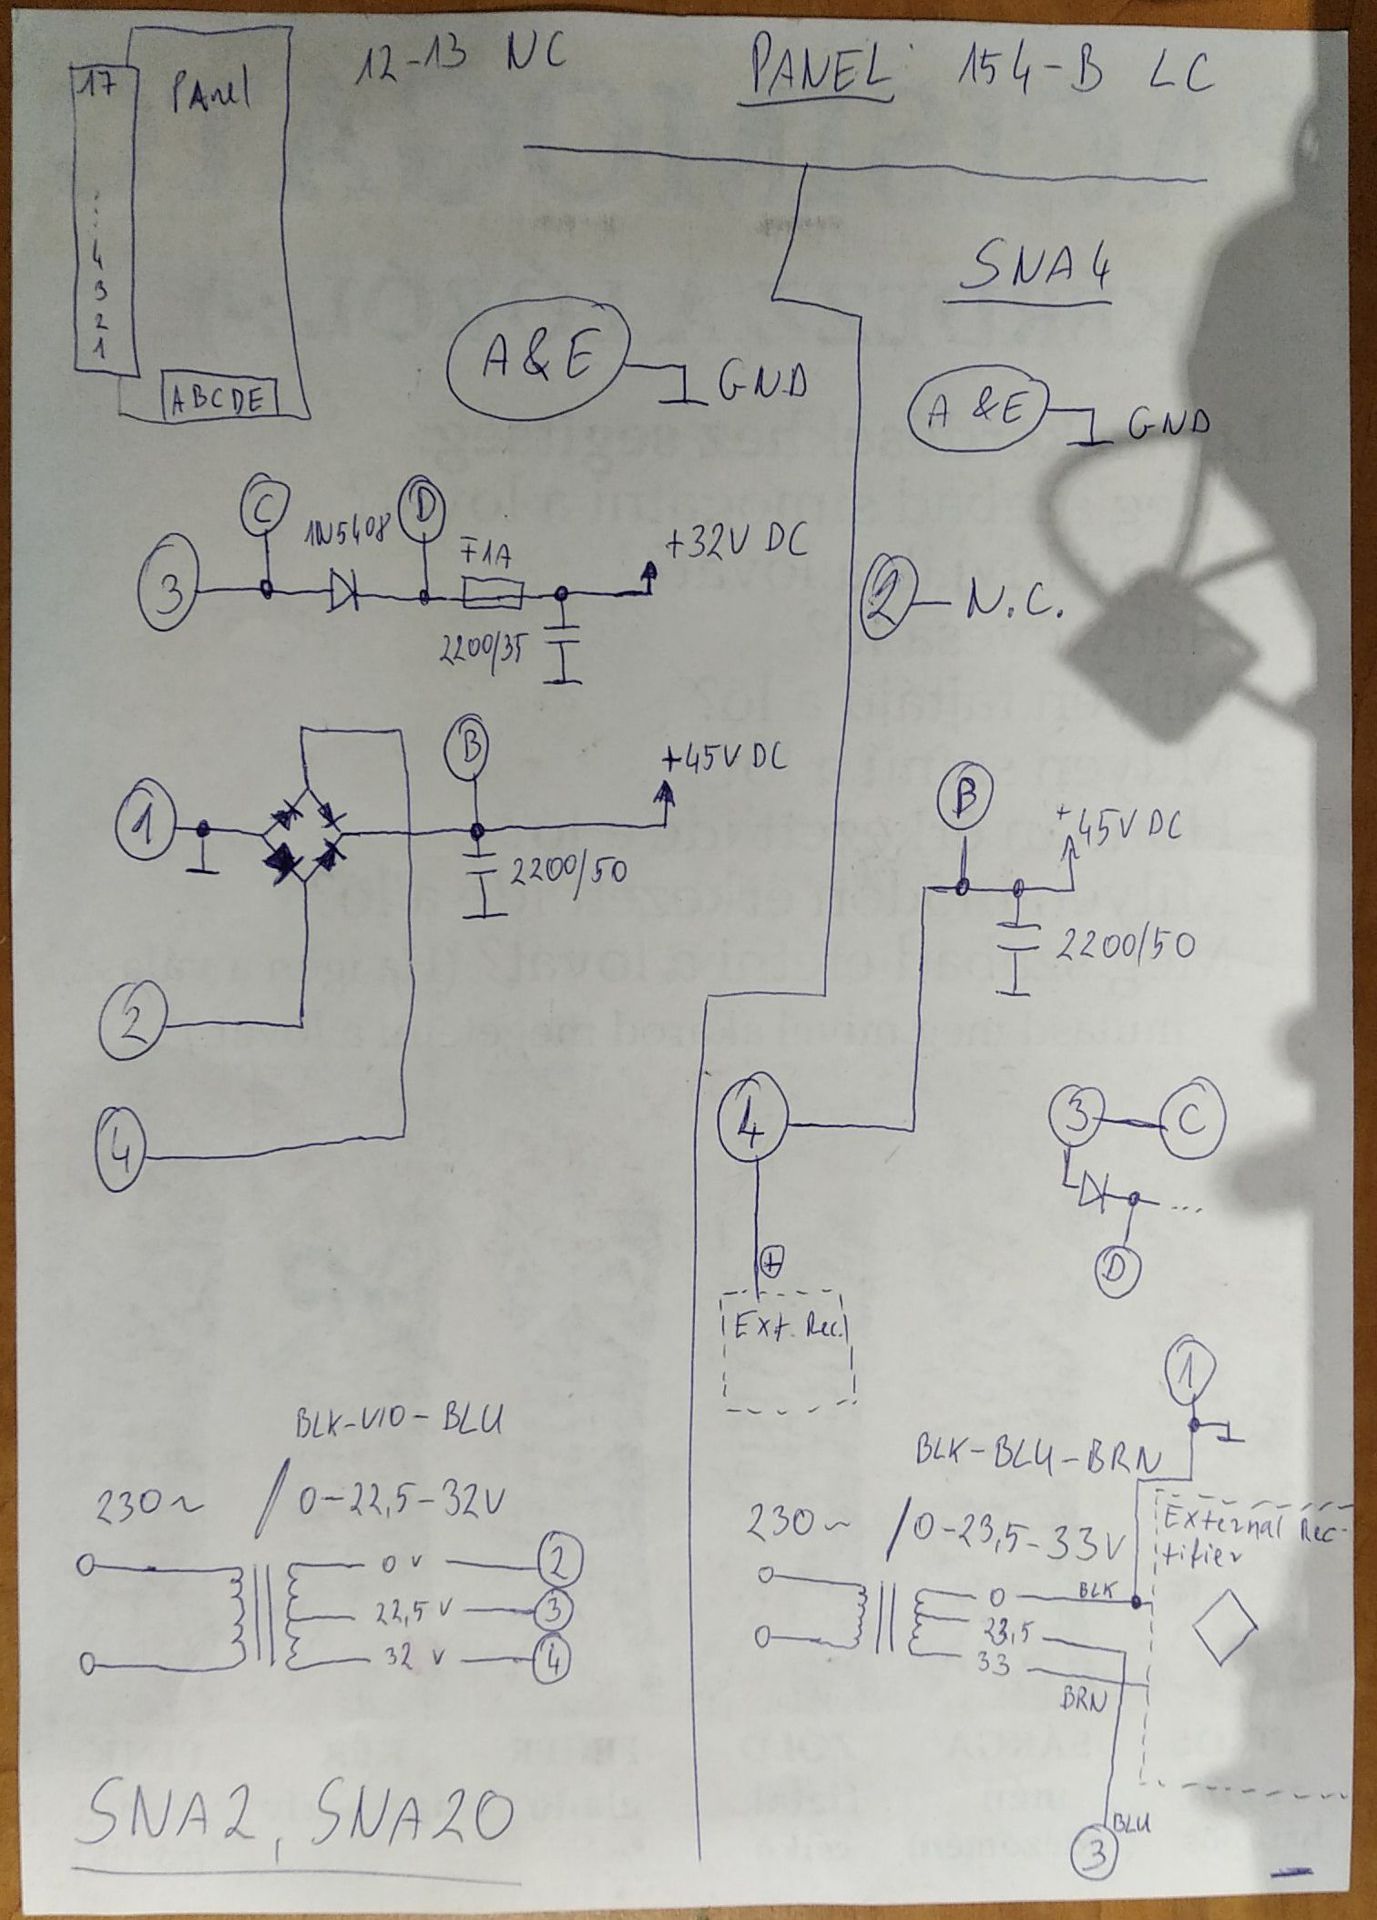 12-13 NC
PANEL: 154-B LC
17
Panel
⋮
4
3
2
1
ABCDE
A&E
GND
SNA4
A&E
GND
C
1N5408
D
F1A
+32V DC
3
2200/35
2
N.C.
1
B
+45V DC
2200/50
2
4
B
+45V DC
2200/50
4
3
C
...
D
+
Ext. Rec.
1
BLK-VIO-BLU
230~ / 0-22,5-32V
0V
2
22,5V
3
32V
4
BLK-BLU-BRN
230~ / 0-23,5-33V
External Rec-
tifier
0
BLK
23,5
33
BRN
BLU
3
SNA2, SNA20